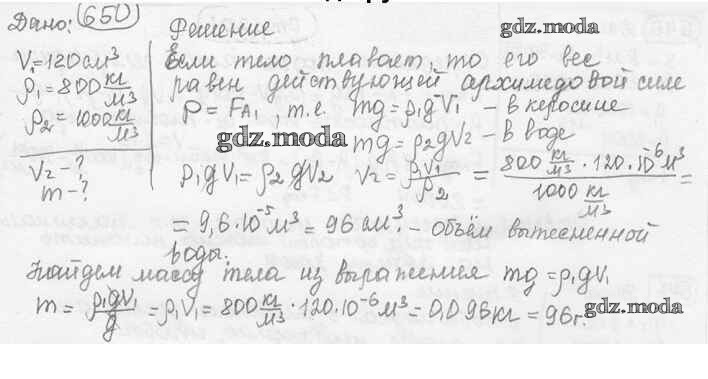 Дано: 650 Решение gdz.moda
V₁=120см³
ρ₁=800 кг/м³
ρ₂=1000 кг/м³
V₂-?
m-?
Если тело плавает, то его вес
равен действующей архимедовой силе
P=F_A₁, т.е. mg=ρ₁gV₁ - в керосине
gdz.moda mg=ρ₂gV₂ - в воде
ρ₁gV₁=ρ₂gV₂ V₂=ρ₁V₁/ρ₂ = 800 кг/м³·120·10⁻⁶м³/1000 кг/м³ =
= 9,6·10⁻⁵м³ = 96 см³. - объём вытесненной
воды.
Найдем массу тела из выражения mg=ρ₁gV₁
m = ρ₁gV₁/g = ρ₁V₁ = 800 кг/м³·120·10⁻⁶м³ = 0,096кг = 96г. gdz.moda